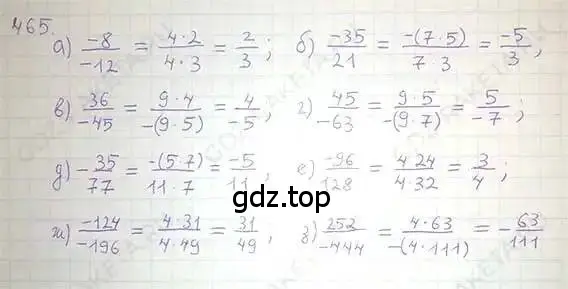 465.
а) -8/-12 = 4·2/4·3 = 2/3; б) -35/21 = -(7·5)/7·3 = -5/3,
в) 36/-45 = 9·4/-(9·5) = 4/-5; г) 45/-63 = 9·5/-(9·7) = 5/-7;
д) -35/77 = -(5·7)/11·7 = -5/11; е) -96/128 = 4·24/4·32 = 3/4;
gdz.top
ж) -124/-196 = 4·31/4·49 = 31/49; з) 252/-444 = 4·63/-(4·111) = -63/111